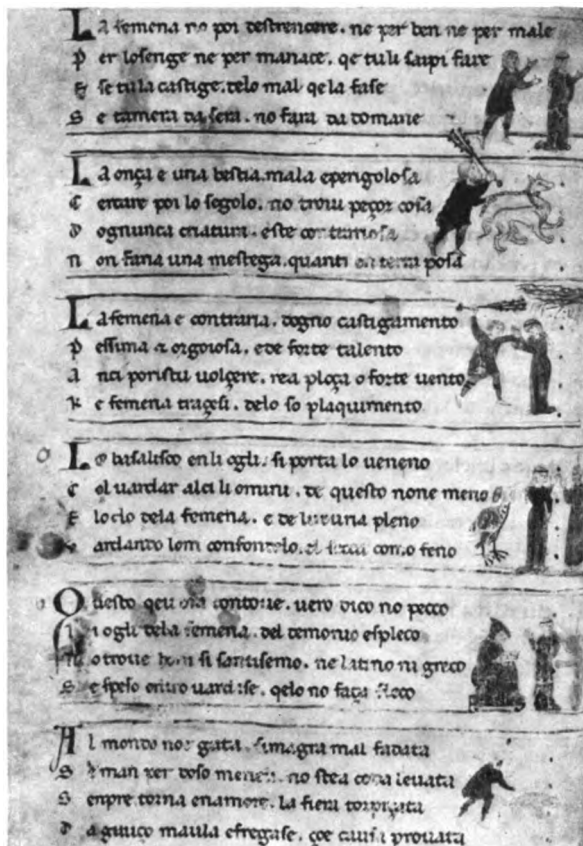 La femena no poi destrençere. ne per ben ne per male
Per losenge ne per manace. qe tuli saipi faire
E se tu la castige. delo mal qe la fase
Se tamera da sera. no fara da domane
La onça e una bestia. mala epengolosa
Cercare poi lo segolo. no trovi peçor cosa
Dognunca criatura. este contrariosa
Non faria una mestega. quanti en terra posa
La femena e contraria. dogno castigamento
Pessima et orgoiosa. e de forte talento
Anci poristu volçere. rea ploça o forte vento
Ke femena traçesi. delo so plaquimento
Lo basalisco en li ogli. si porta lo veneno
Col vardar alci li omini. de questo none meno
E loclo dela femena. e de luxuria pleno
Vardando lom confondelo. el secca como feno
Questo qeu ora contove. vero dico no pecco
Li ogli dela femena. del demonio espleco
No trove hom si santisemo. ne latino ni greco
Se speso entro vardase. qelo no faça
Al mondo non e gata. simagra mal fadata
Se man per doso meneli. no stea coda levata
Senpre torna enamore. la fiera
Daguiço maula efregase. çoe causa provata